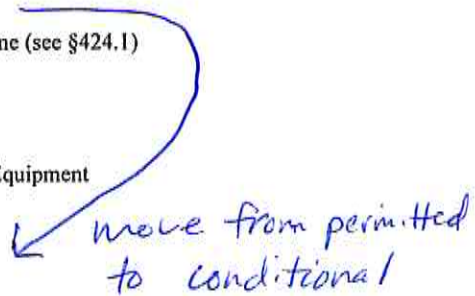 (see §424.1)
Equipment
move from permitted
to conditional